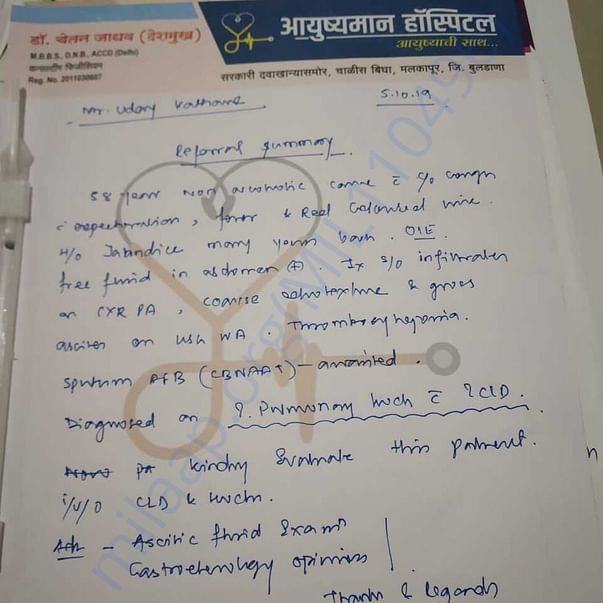 डॉ. चेतन जाधव (देशमुख)
M.B.B.S, D.N.B, ACCD (Delhi)
कन्सल्टींग फिजीशियन
Reg. No. 2011030687
आयुष्यमान हॉस्पिटल
आयुष्याची साथ...
सरकारी दवाखान्यासमोर, चाळीस बिघा, मलकापूर, जि. बुलडाणा
Mr. Uday
5.10.19
Referral Summary
58 year non alcoholic came c̄ c/o cough
c̄ expectoration, fever & Red coloured urine.
H/o Jaundice many years back. O/E.
free fluid in abdomen (+). Ix s/o infiltrates
on CXR PA, coarse echotexture & gross
ascites on USG W/A. Thrombocytopenia.
Sputum AFB (CBNAAT) - awaited.
Diagnosed as ?. Pulmonary Koch c̄ ?CLD.
kindly Evaluate this patient.
i/v/o CLD & Koch.
Adv - Ascitic fluid Exam
Gastroenterology opinion
Thanks & Regards
milaap.org/MIL11049